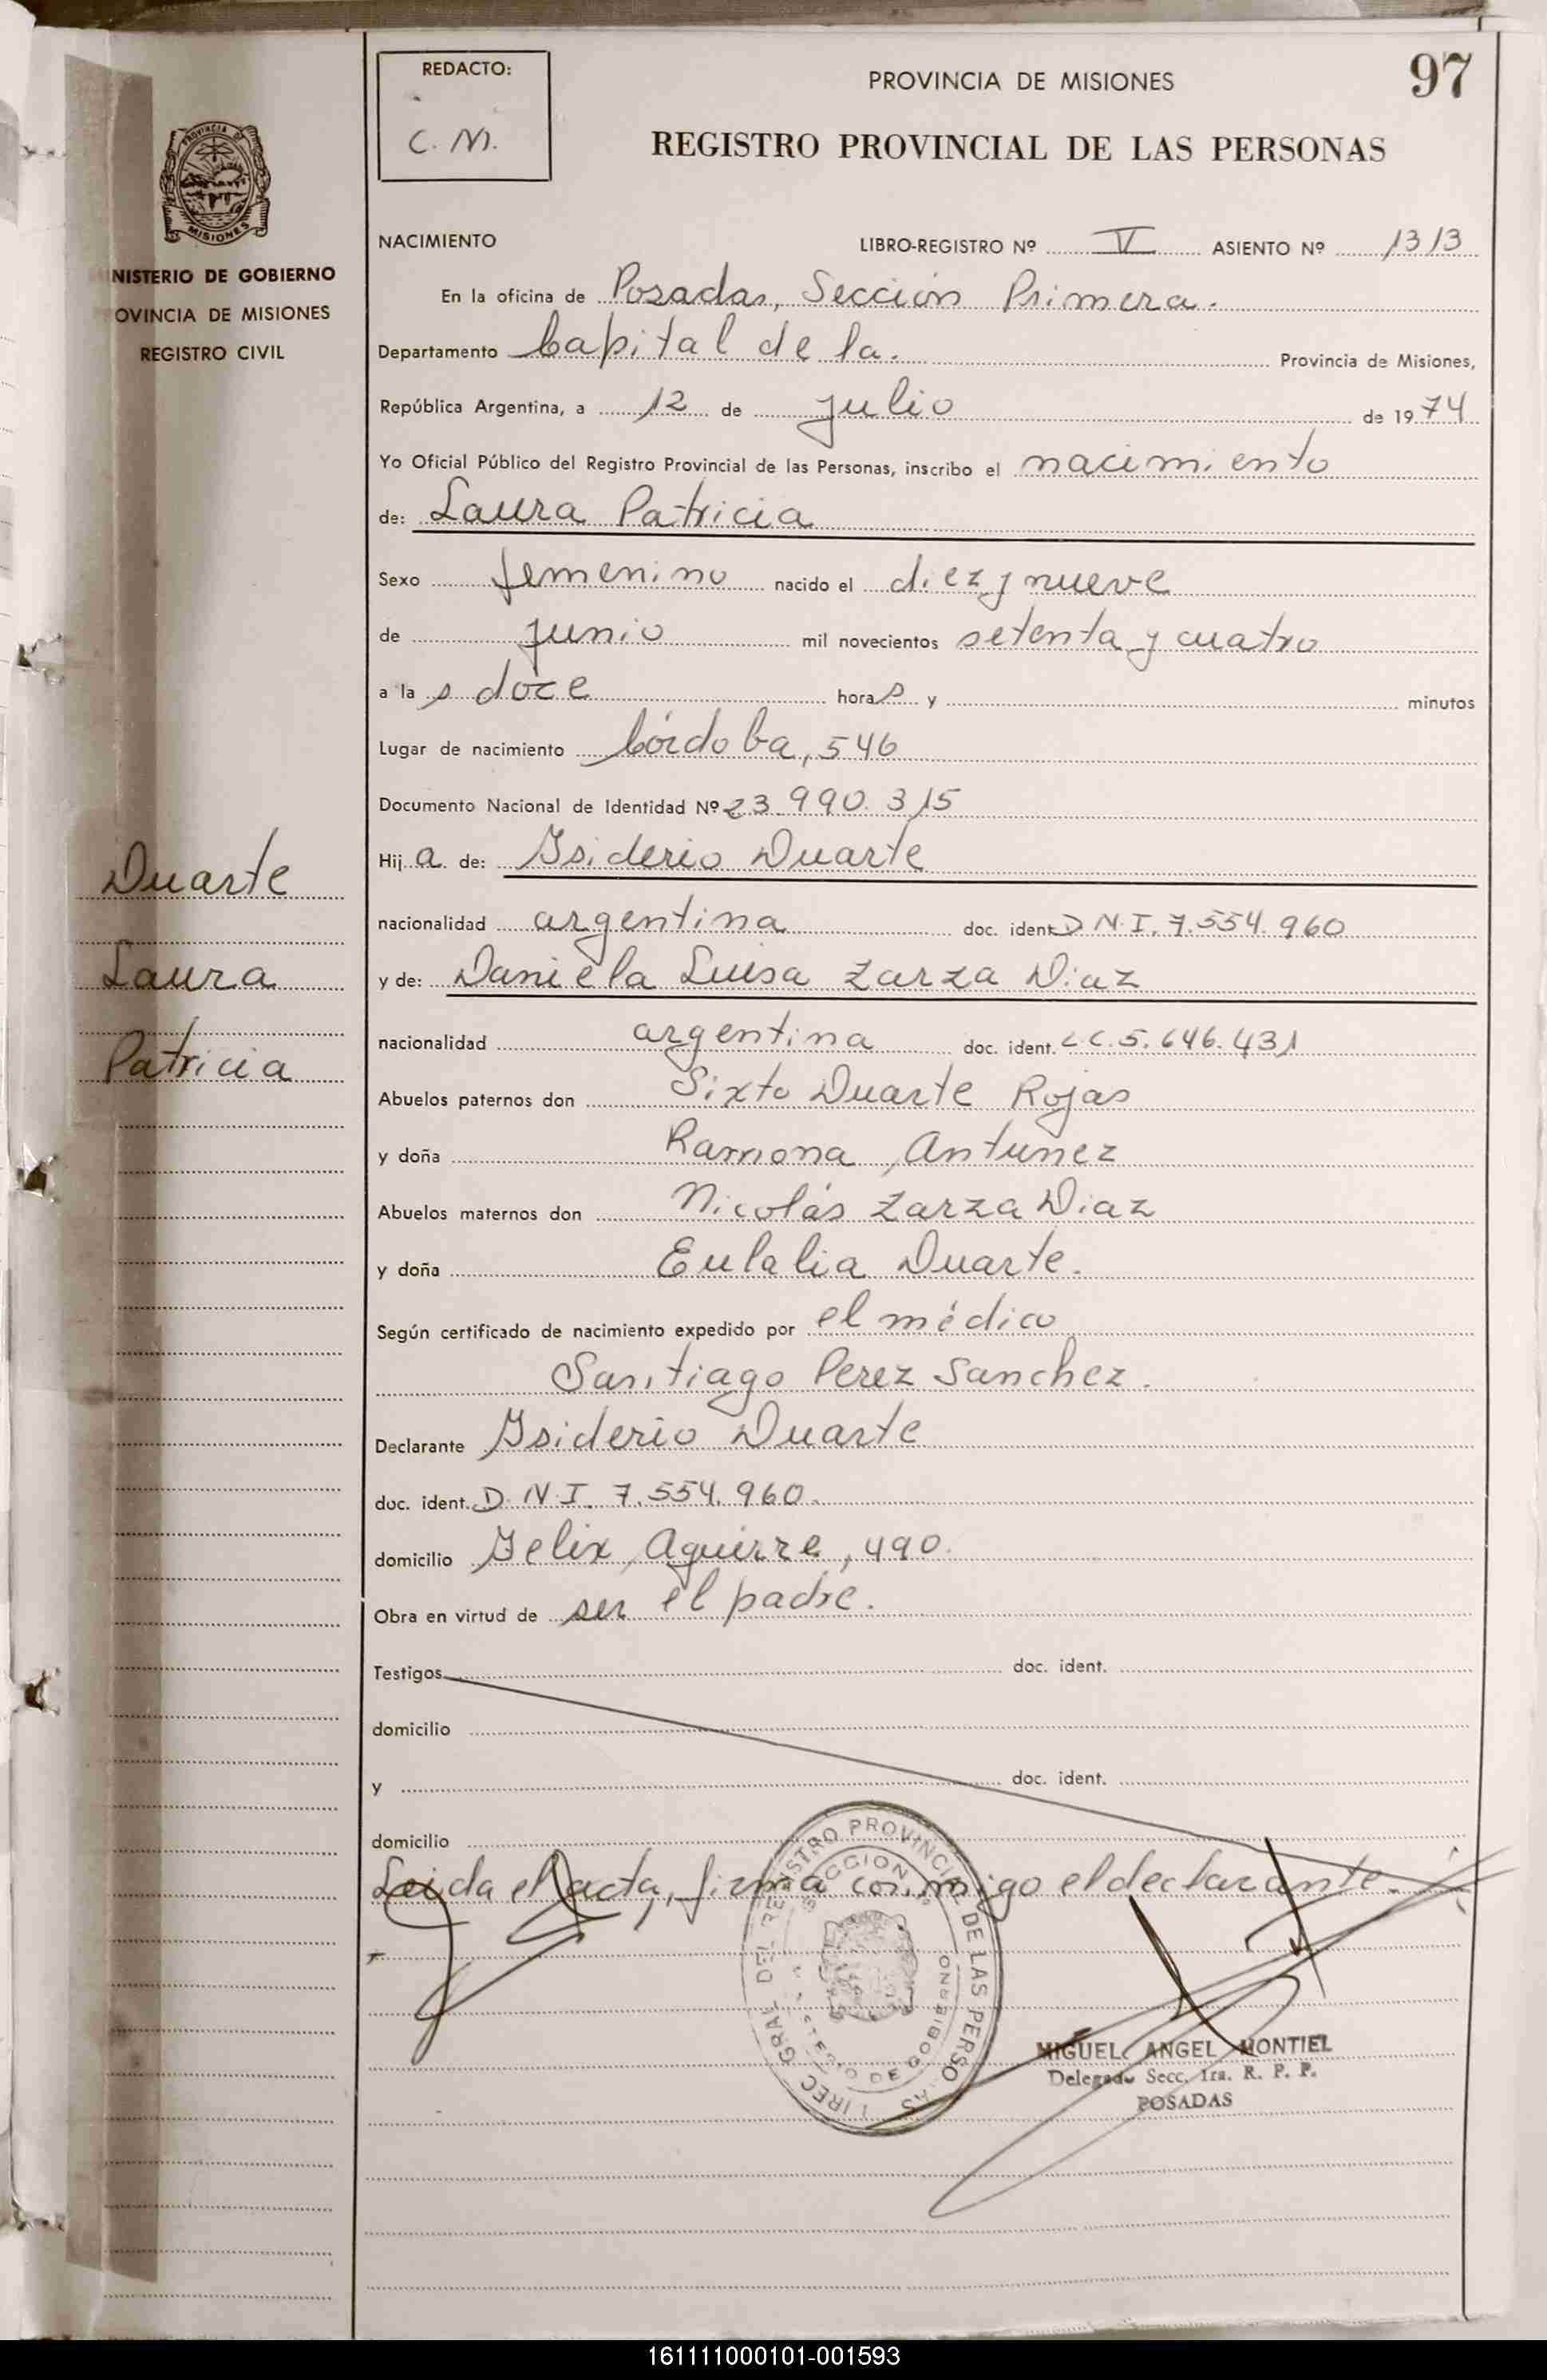 REDACTO:
C. M.
PROVINCIA DE MISIONES
97
REGISTRO PROVINCIAL DE LAS PERSONAS
PROVINCIA DE
MISIONES
NISTERIO DE GOBIERNO
OVINCIA DE MISIONES
REGISTRO CIVIL
NACIMIENTO LIBRO-REGISTRO Nº V ASIENTO Nº 1313
En la oficina de Posadas, Sección Primera.
Departamento Capital de la. Provincia de Misiones,
República Argentina, a 12 de julio de 1974
Yo Oficial Público del Registro Provincial de las Personas, inscribo el nacimiento
de: Laura Patricia
Sexo femenino nacido el diez y nueve
de junio mil novecientos setenta y cuatro
a la s doce hora s y minutos
Lugar de nacimiento Córdoba, 546
Documento Nacional de Identidad Nº 23.990.315
Hij a de: Isiderio Duarte
nacionalidad argentina doc. ident. D.N.I. 7.554.960
y de: Daniela Luisa Zarza Diaz
nacionalidad argentina doc. ident. L C. 5.646.431
Abuelos paternos don Sixto Duarte Rojas
y doña Ramona Antunez
Abuelos maternos don Nicolás Zarza Diaz
y doña Eulalia Duarte.
Según certificado de nacimiento expedido por el médico
Santiago Perez Sanchez.
Declarante Isiderio Duarte
doc. ident. D.N.I. 7.554.960.
domicilio Felix Aguirre, 490.
Obra en virtud de ser el padre.
Testigos doc. ident.
domicilio
y doc. ident.
domicilio
Leida el acta, firma conmigo el declarante.
Duarte
Laura
Patricia
REGISTRO PROVINCIAL DE LAS PERSO AS
GRAL DEL
SECCION
DE GOBIERNO
MIGUEL ANGEL MONTIEL
Delegado Secc. 1ra. R. P. P.
POSADAS
161111000101-001593